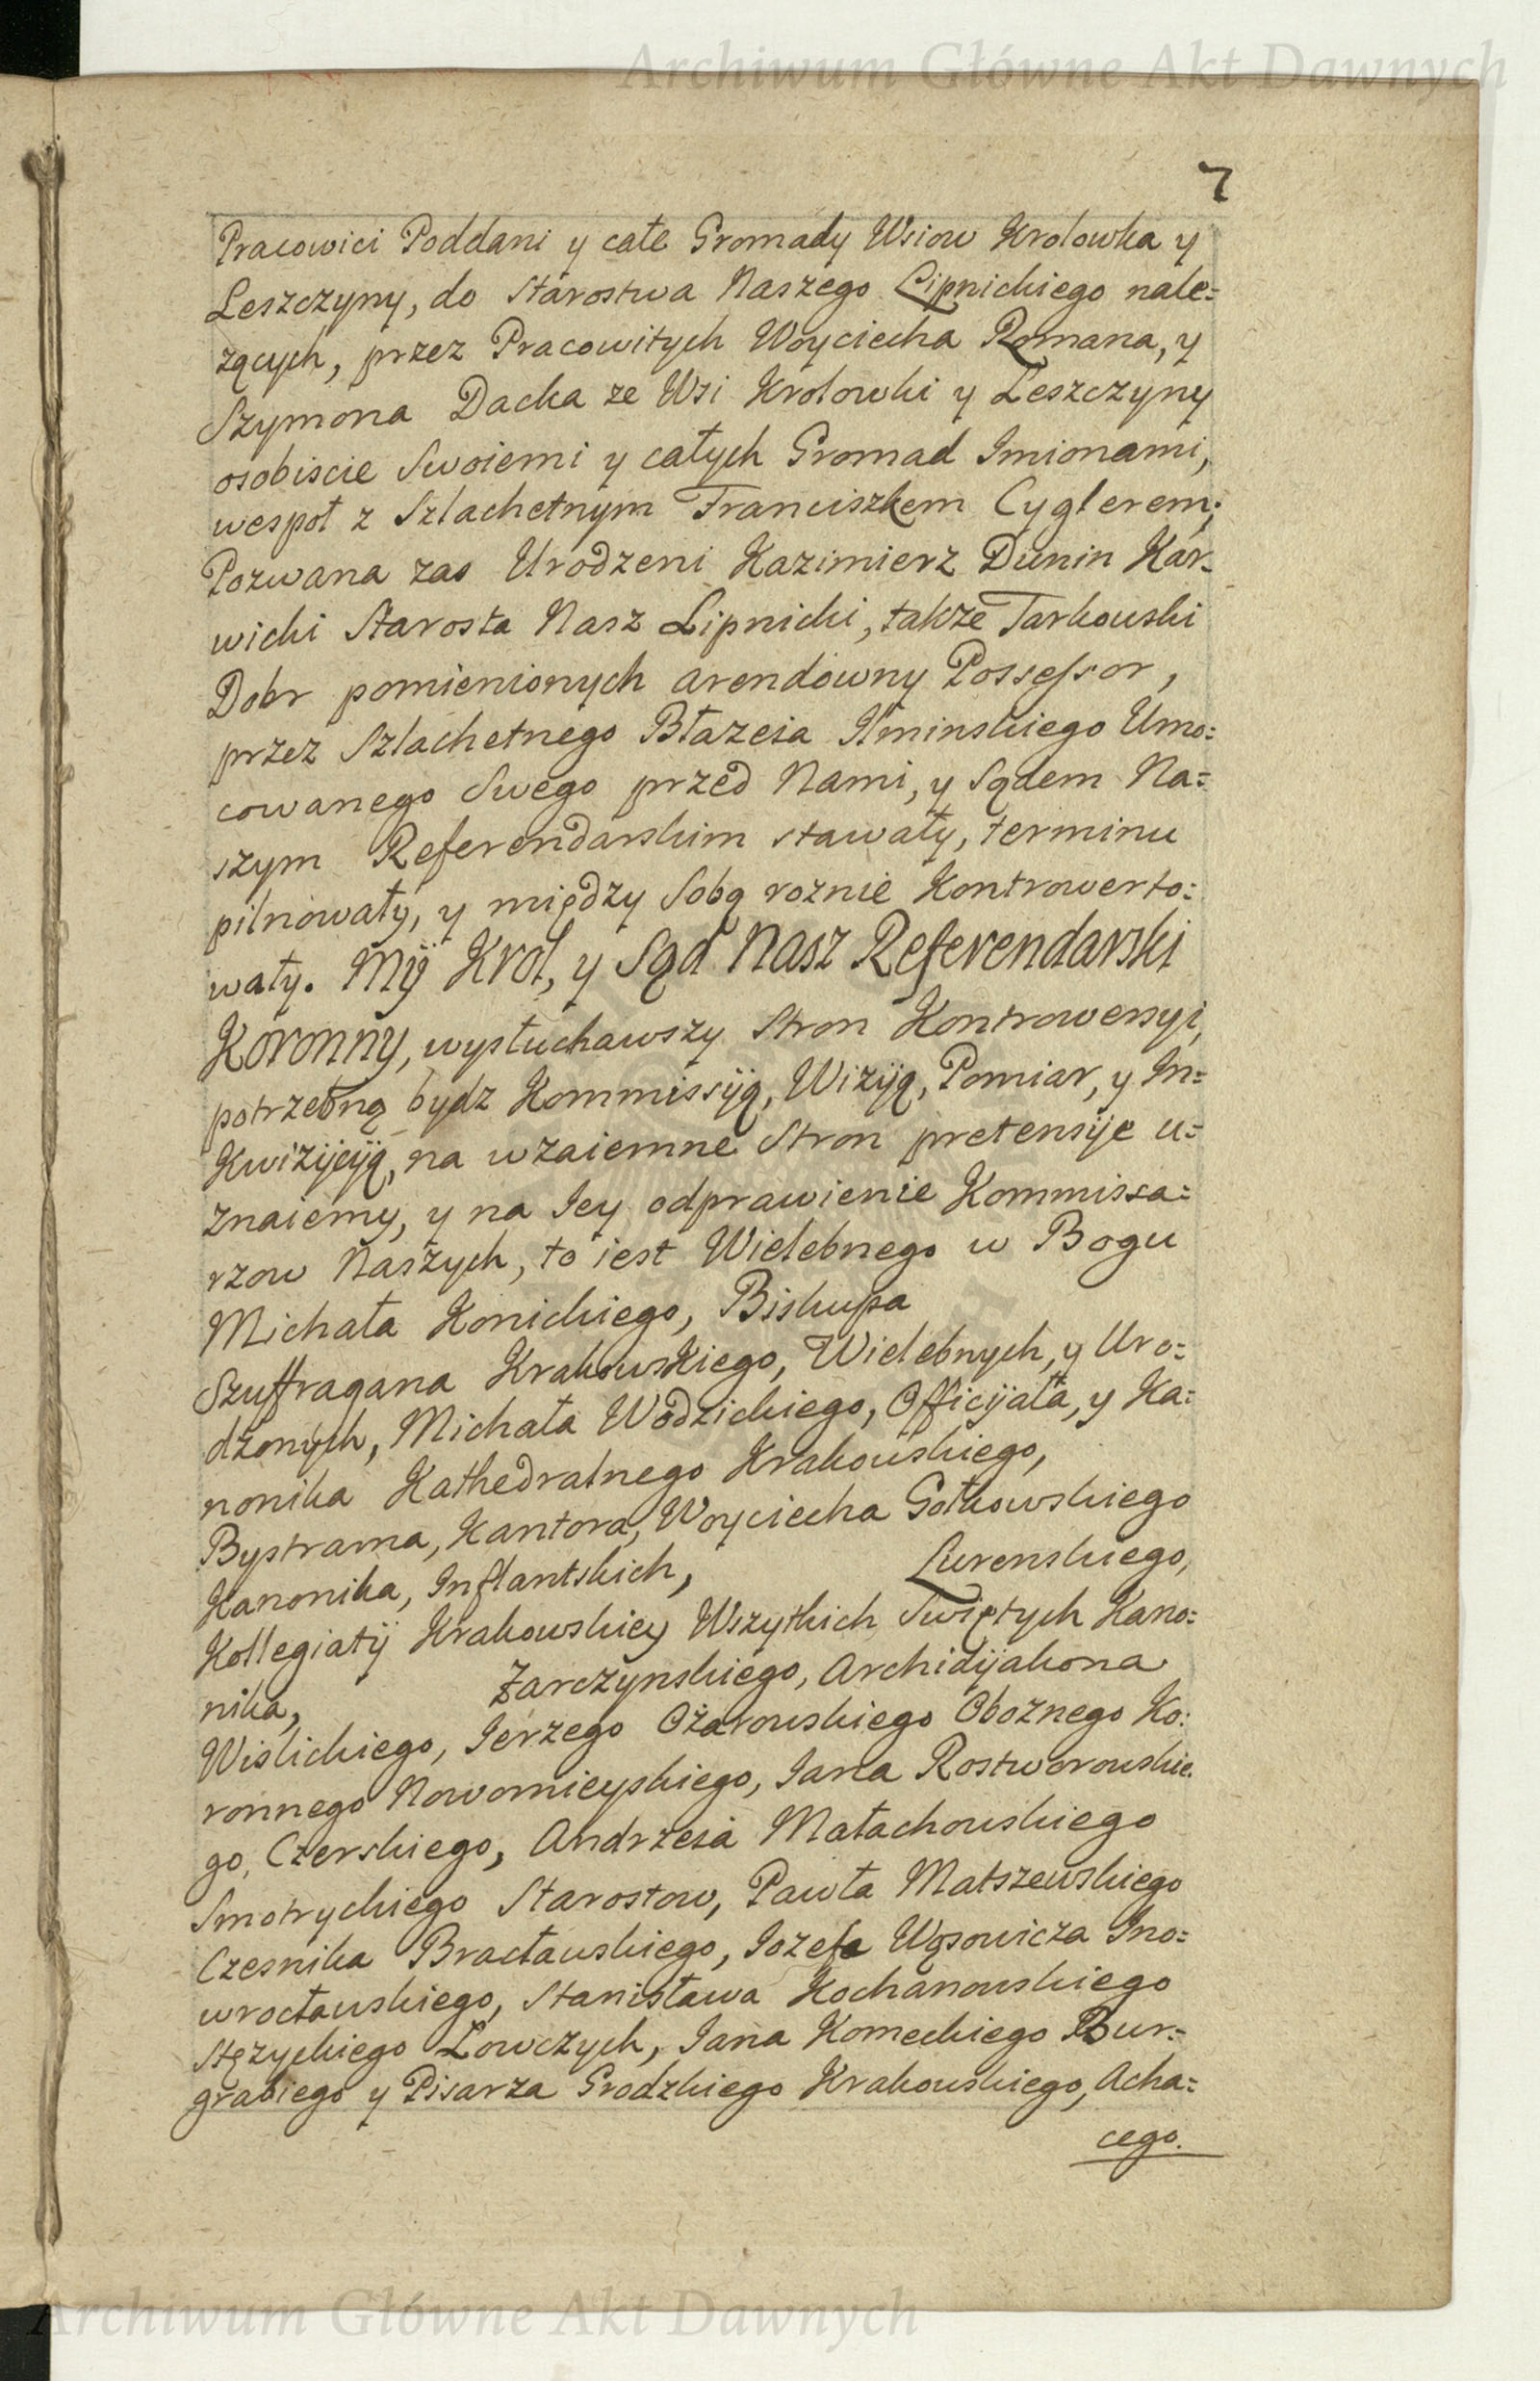 Archiwum Główne Akt Dawnych
7
Pracowici Poddani y całe Gromady Wsiow Krolowka y
Leszczyny, do Starostwa Naszego Lipnickiego nale=
zących, przez Pracowitych Woyciecha Romana, y
Szymona Dacka ze Wsi Krolowki y Leszczyny
osobiscie Swoiemi y całych Gromad Imionami,
wespoł z Szlachetnym Franciszkem Cyglerem;
Pozwana zas Urodzeni Kazimierz Dunin Kar=
wicki Starosta Nasz Lipnicki, także Tarkowski
Dobr pomienionych arendowny Possessor,
przez Szlachetnego Błazeia Ilminskiego Umo=
cowanego Swego przed Nami, y Sądem Na=
szym Referendarskim stawały, terminu
pilnowały, y między Sobą roznie Kontrowerto=
wały. Mÿ Krol, y Sąd Nasz Referendarski
Koronny, wysłuchawszy Stron Kontrowersyi,
potrzebną bydz Kommissÿą, Wizÿą, Pomiar, y In=
Kwizÿcÿą, na wzaiemne Stron pretensÿe u=
znaiemy, y na Iey odprawienie Kommissa=
rzow Naszych, to iest Wielebnego w Bogu
Michała Konickiego, Biskupa
Szuffragana Krakowskiego, Wielebnych, y Uro=
dzonych, Michała Wodzickiego, Officÿała, y Ka=
nonika Kathedralnego Krakowskiego,
Bystrama, Kantora, Woyciecha Gołkowskiego
Kanonika, Inflantskich, Lurenskiego,
Kollegiatÿ Krakowskiey Wszytkich Swiętych Kano=
nika, Zarczynskiego, Archidÿakona
Wislickiego, Ierzego Ożarowskiego Oboznego Ko=
ronnego Nowomieyskiego, Iana Rostworowskie=
go, Czerskiego, Andrzeia Małachowskiego
Smotryckiego Starostow, Pawła Matszewskiego
Czesnika Bracławskiego, Iozefa Wąsowicza Ino=
wrocławskiego, Stanisława Kochanowskiego
Stęzyckiego Łowczych, Iana Komeckiego Bur=
grabiego y Pisarza Grodzkiego Krakowskiego, Acha=
cego.
Archiwum Główne Akt Dawnych